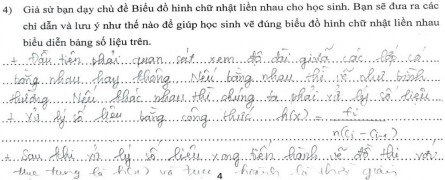 4) Giả sử bạn dạy chủ đề Biểu đồ hình chữ nhật liền nhau cho học sinh. Bạn sẽ đưa ra các
chỉ dẫn và lưu ý như thế nào để giúp học sinh vẽ đúng biểu đồ hình chữ nhật liền nhau
biểu diễn bảng số liệu trên.
+ Đầu tiên phải quan sát xem độ dài giữa các lớp có
bằng nhau hay không. Nếu bằng nhau thì vẽ như bình
thường. Nếu khác nhau thì chúng ta phải xử lý số liệu
+ Xử lý số liệu bằng công thức h(x) = fi / n(Ci - Ci-1)
+ Sau khi xử lý số liệu xong tiến hành vẽ đồ thị với
trục tung là h(x) và trục hoành là thời gian
4